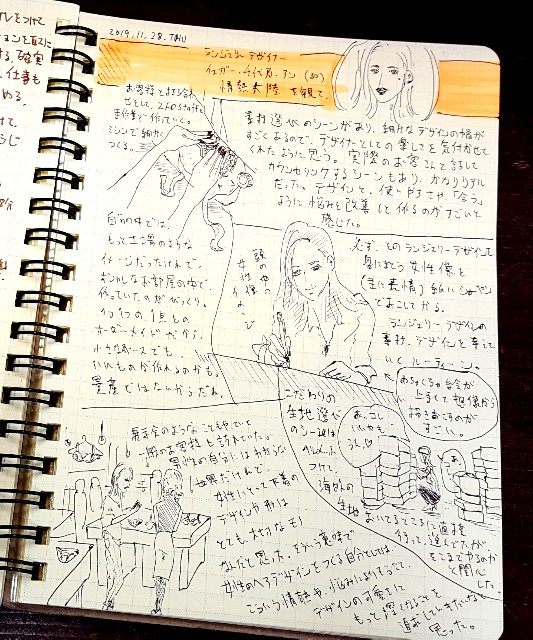 2019.11.28.THU
ランジェリーデザイナー
チェガー・千代乃・アン(30)
情熱大陸を観て。
お客様と打ち合わ
をして、
手作業で作っていく。
ミシンで細かく
つくる。
素材選びのシーンがあり、細かなデザインの幅が
すごくあるので、デザイナーとしての楽しさを気付かせて
くれたように思う。実際のお客さんと話して
カウンセリングするシーンもあり、かなりリアル
だった。デザインと、使いやすさや「合う」
ように悩みを改善して作るのがすごいと
感じた。
自分の中では、
もっと工場のような
イメージだったけれど、
おしゃれなお部屋の中で
作っていたのがびっくり。
1つ1つの1点もの
オーダーメイドだから、
小さなスペースでも
いいものが作れるのかも。
量産ではないからだね。
頭の中の
女性像
必ず、そのランジェリーデザインで
身にまとう女性像を
(主に表情)紙にシャーペン
でおこしてかる。
ランジェリーデザインの
素材、デザインを考えて
いくルーティーン。
めちゃくちゃ絵が
上手くて想像から
描きおこすのが
すごい。
こだわりの
生地選び
のシーンは
ヘルメット
つけて、
海外の
生地
あ、コレ
いいかも
おいてるところに直接
行って、選んでたが、
そこまでやるのか
と関心
した。
展示会のようなこともやって
男性の自分にはわからない
世界だけれど、
女性にとって下着の
デザインや形は
とても大切なモノ
なんだと思った。そういう意味で
女性のヘアデザインをつくる自分としては、
こういう情熱や、悩みによりそって、
デザインの可愛さに
もっと深くなることを
追求していきたいなと
思った。